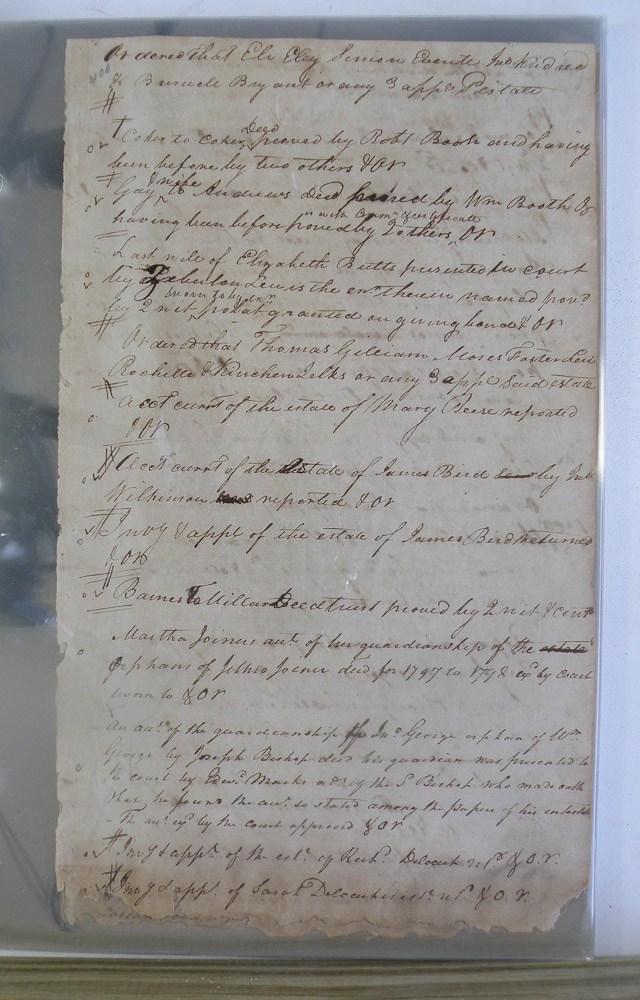 Ordered that Eli Eley Simon Everitt Jno Kindred
& Burwell Bryant or any 3 appr Ps estate
Coker to Coker Deed proved by Robt Booth and having
been before by two others & OR
Gay & wife to Andrews Deed proved by Wm Booth &
having been before proved by 2 others in with Comn & certificate OR
Last will of Elizabeth Butts presented in court
by Zebulon Lewis the exr therein named provd
by 2 wit sworn to by exr probat granted on giving bond & OR
Ordered that Thomas Gilliam Moses Foster Levi
Rochelle & Kinchen Jelks or any 3 app said estate
acct currt of the estate of Mary Beese reported
& OR
Acct currt of the estate of James Bird by Jno
Wilkinson reported & OR
Invy & appt of the estate of James Bird returned
& OR
Barnes To Millar Deed trust proved by 2 wit & cont
Martha Joiners aut of her guardianship of the estate
Orphans of Jethro Joiner decd for 1797 to 1798 exd by court
sworn to & OR
An aut of the guardianship of Jno George orphan of Wm
George by Joseph Bishop decd his guardian was presented to
the court by Edwd Marks adr of the sd Bishop who made oath
that he found the aut so stated among the papers of his intestate
the aut exd by the court approved & OR
Invy & appt of the est of Richd Deloach retd & O.R.
Invy & appt of Sarah Deloaches est. retd & O.R.